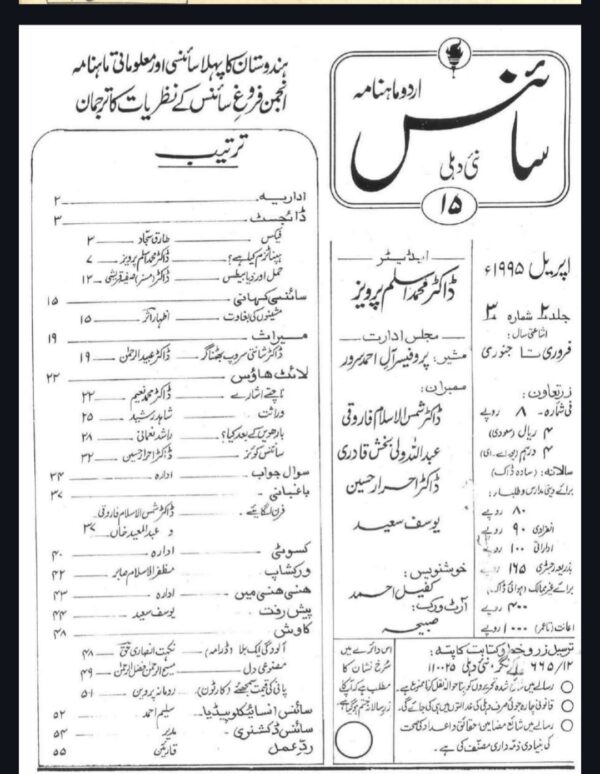 ہندوستان کا پہلا سائنسی اور معلوماتی ماہنامہ
انجمن فروغِ سائنس کے نظریات کا ترجمان
اردو ماہنامہ
سائنس
نئی دہلی
۱۵
ترتیب
اداریہ ۲
ڈائجسٹ ۳
فیکس طارق سجاد ۳
ہپناٹزم کیا ہے؟ ڈاکٹر محمد اسلم پرویز ۷
حمل اور ذیابیطس ڈاکٹر (مسز) صفیہ قریشی ۱۲
سائنسی کہانی ۱۵
مشینوں کی بغاوت اظہار اثر ۱۵
میراث ۱۹
ڈاکٹر شانتی سروپ بھٹناگر ڈاکٹر عبید الرحمٰن ۱۹
لائٹ ہاؤس ۲۲
ناچتے اشارے ڈاکٹر محمد نعیم ۲۲
وراثت شاہد رشید ۲۵
بارھویں کے بعد کیا؟ راشد نعمانی ۲۸
سائنس کوئز ڈاکٹر احرار حسین ۳۲
سوال جواب ادارہ ۳۴
باغبانی ۳۷
فرن لگائیے ڈاکٹر شمس الاسلام فاروقی
و عبد المعید خاں ۳۷
کسوٹی ادارہ ۴۰
ورکشاپ مظفر الاسلام صابر ۴۲
ہنسی ہنسی میں ادارہ ۴۳
پیش رفت یوسف سعید ۴۴
کاوش ۴۸
آلودگی ایک بلا (ڈرامہ) نکہت انصاری ۴۸
مصنوعی دل مسیح الرحمٰن فضل الرحمٰن ۴۹
پانی کی قیمت سمجھئے (کارٹون) رومانہ پروین ۵۱
سائنس انسائیکلوپیڈیا سلیم احمد ۵۲
سائنس ڈکشنری مدیر ۵۴
ردِّ عمل قارئین ۵۵
ایڈیٹر
ڈاکٹر محمد اسلم پرویز
مجلس ادارت
مشیر: پروفیسر آل احمد سرور
ممبران:
ڈاکٹر شمس الاسلام فاروقی
عبداللہ ولی بخش قادری
ڈاکٹر احرار حسین
یوسف سعید
خوشنویس:
کفیل احمد
آرٹ ورک:
صبیحہ
اپریل ۱۹۹۵ء
جلد ۲ شمارہ ۳
اشاعتی سال:
فروری تا جنوری
زر تعاون:
فی شمارہ - ۸ روپے
۴ ریال (سعودی)
۴ درہم (یو۔اے۔ای)
سالانہ: (سادہ ڈاک)
برائے دینی مدارس و طلباء:
۸۰ روپے
انفرادی ۹۰ روپے
اداراتی ۱۰۰ روپے
بذریعہ رجسٹری ۱۶۵ روپے
برائے غیر ممالک (ہوائی ڈاک)
۴۰۰ روپے
اعانت (تا عمر) ۱۰۰۰ روپے
ترسیل زر و خط و کتابت کا پتہ:
۶۶۵/۱۲ نگر، نئی دہلی ۱۱۰۰۲۵
رسالے میں شائع شدہ تحریروں کو بنا حوالہ نقل کرنا ممنوع ہے۔
قانونی چارہ جوئی صرف دہلی کی عدالتوں میں ہی کی جائے گی۔
رسالے میں شائع مضامین، حقائق و اعداد کی صحت
کی بنیادی ذمہ داری مصنف کی ہے۔
اس دائرے میں
سُرخ نشان کا
مطلب ہے کہ آپ کا
زرِ سالانہ ختم ہو گیا ہے